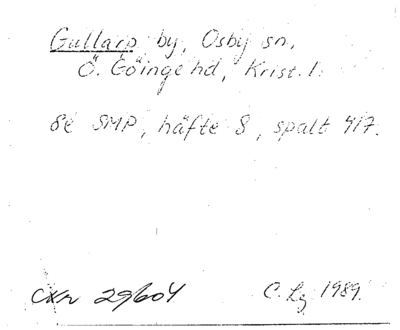 Gullarp by, Osby sn,
Ö. Göinge hd, Krist. l.
se SMP, häfte 8, spalt 417.
29604 C. Lg 1989.